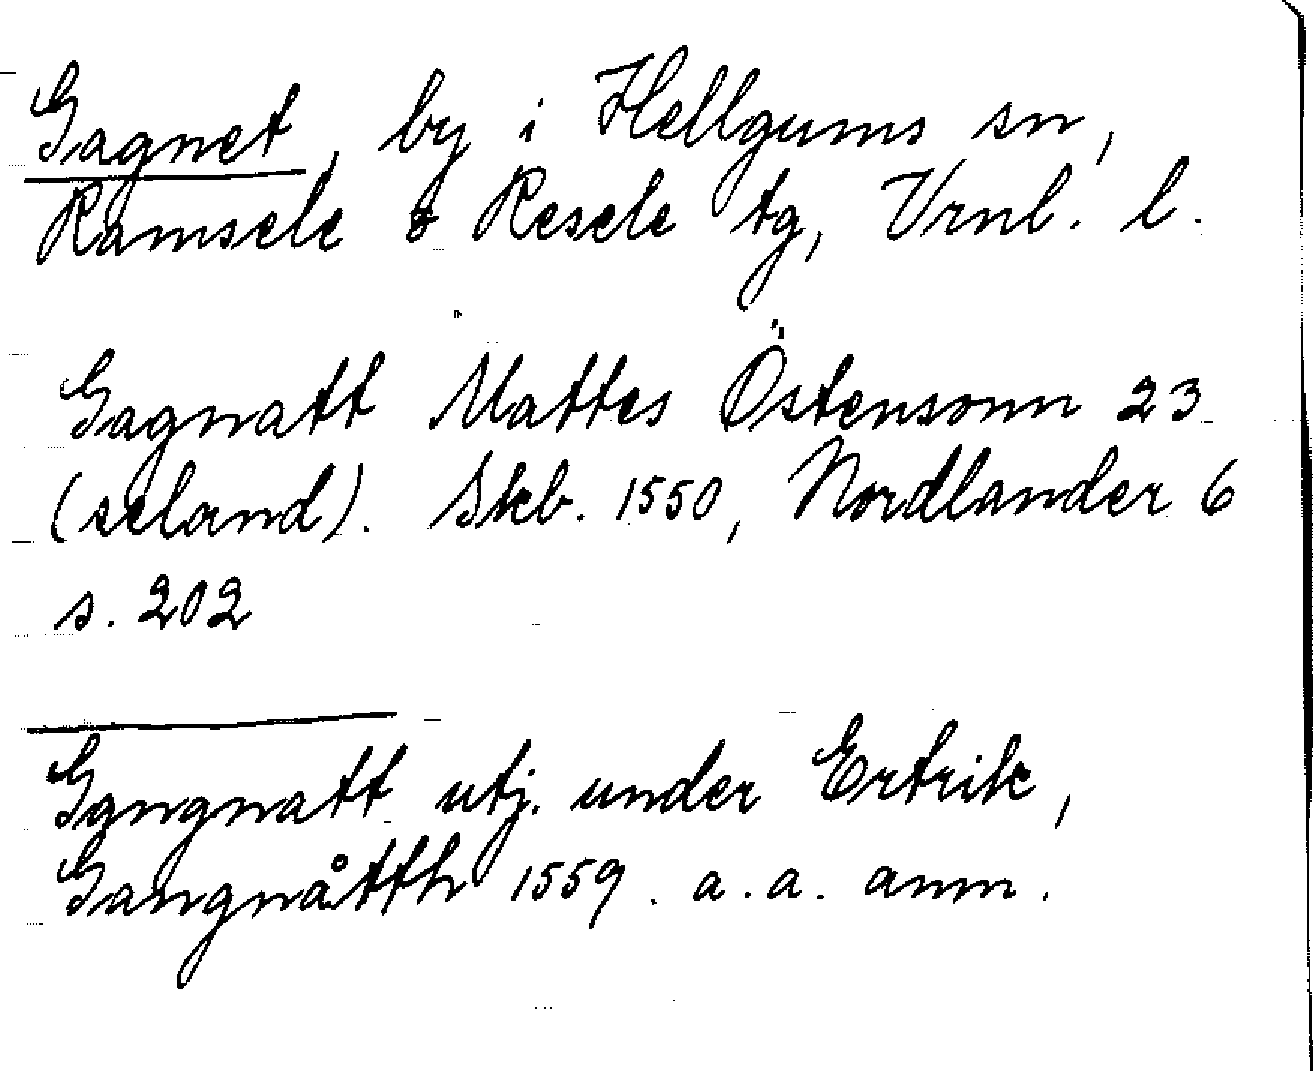 Gagnet, by i Hellgums sn,
Ramsele & Resele tg, Vrnl. l.
Gagnatt Mattes Östensonn 23
(seland). Skb. 1550, Nordlander 6
s. 202
Gangnatt utj. under Ertrik,
Gangnåtth 1559. a.a. anm.